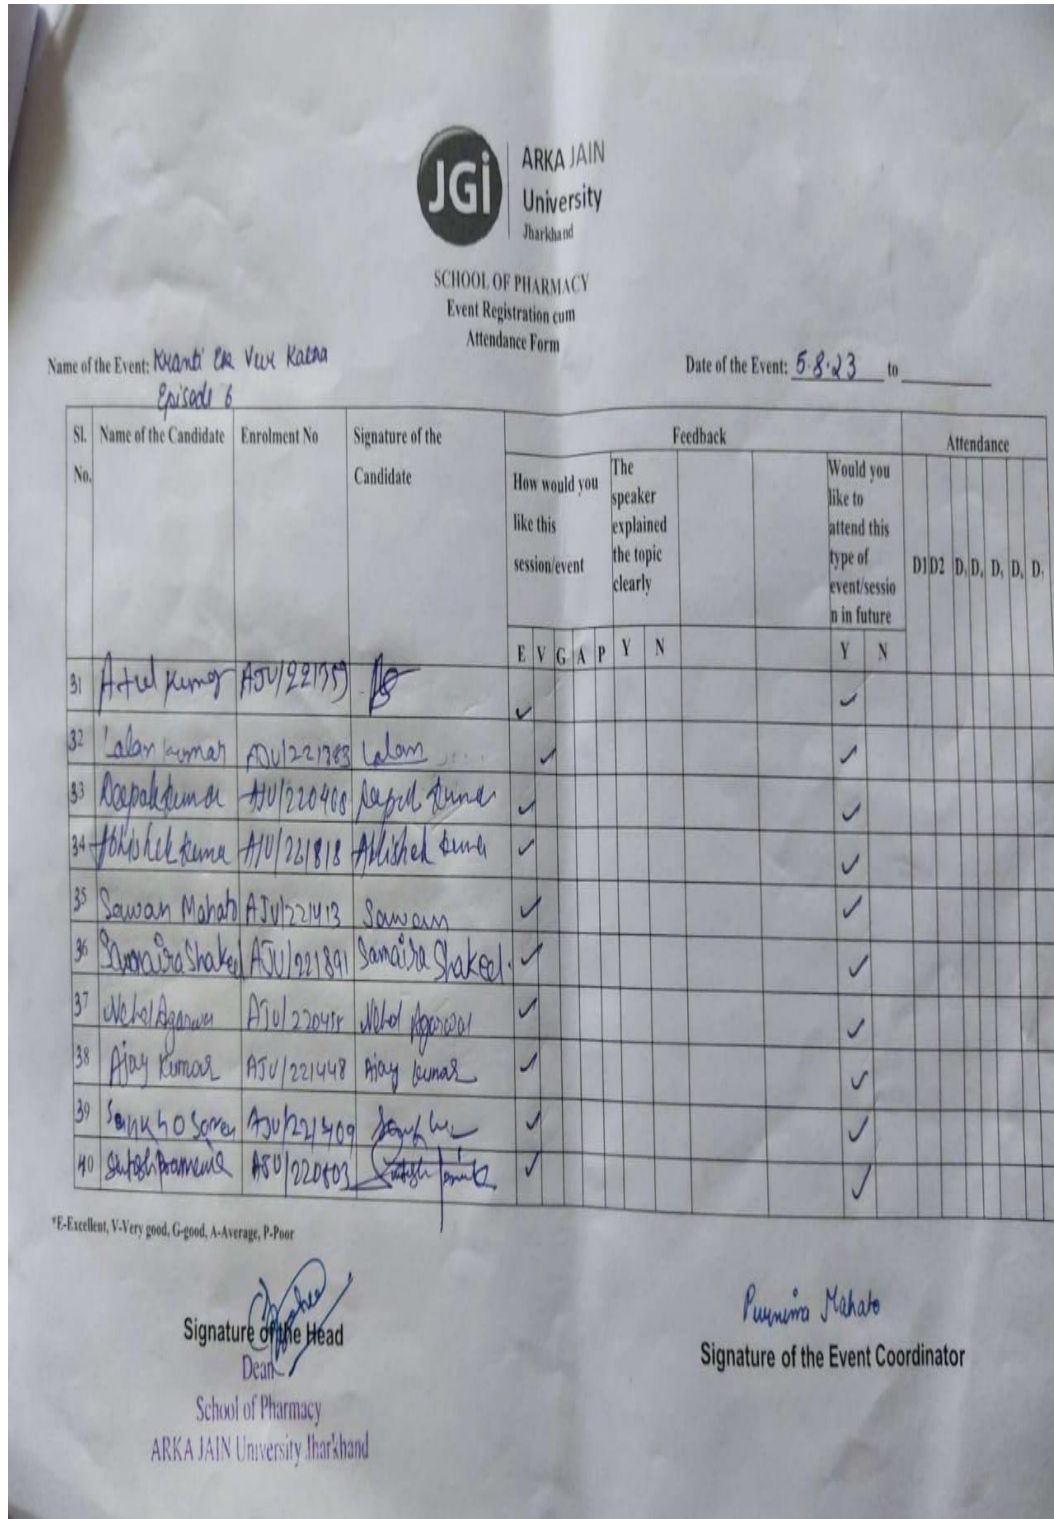 JGi
ARKA JAIN
University
Jharkhand
SCHOOL OF PHARMACY
Event Registration cum
Attendance Form
Name of the Event: Kranti Ek Veer Katha
Episode 6
Date of the Event: 5.8.23 to
Sl. No. Name of the Candidate Enrolment No Signature of the Candidate Feedback Attendance
How would you like this session/event
The speaker explained the topic clearly
Would you like to attend this type of event/session in future
D1 D2 D3 D4 D5 D6 D7
E V G A P Y N Y N
31 Kumar AJU/221359 ✓ ✓
32 Lalan Kumar AJU/221383 Lalan ✓ ✓
33 Deepak Kumar AJU/220468 Kumar ✓ ✓
34 Abhishek Kumar AJU/221818 Abhishek Kumar ✓ ✓
35 Sawan Mahato AJU/221413 Sawan ✓ ✓
36 Samaira Shakeel AJU/221891 Samaira Shakeel. ✓ ✓
37 Nehal Agarwal Nehal Agarwal ✓ ✓
38 Ajay Kumar AJU/221448 Ajay Kumar ✓ ✓
39 Soren AJU/221409 ✓ ✓
40 AJU/220803 ✓ ✓
*E-Excellent, V-Very good, G-good, A-Average, P-Poor
Signature of the Head
Dean
School of Pharmacy
ARKA JAIN University Jharkhand
Purnima Mahato
Signature of the Event Coordinator